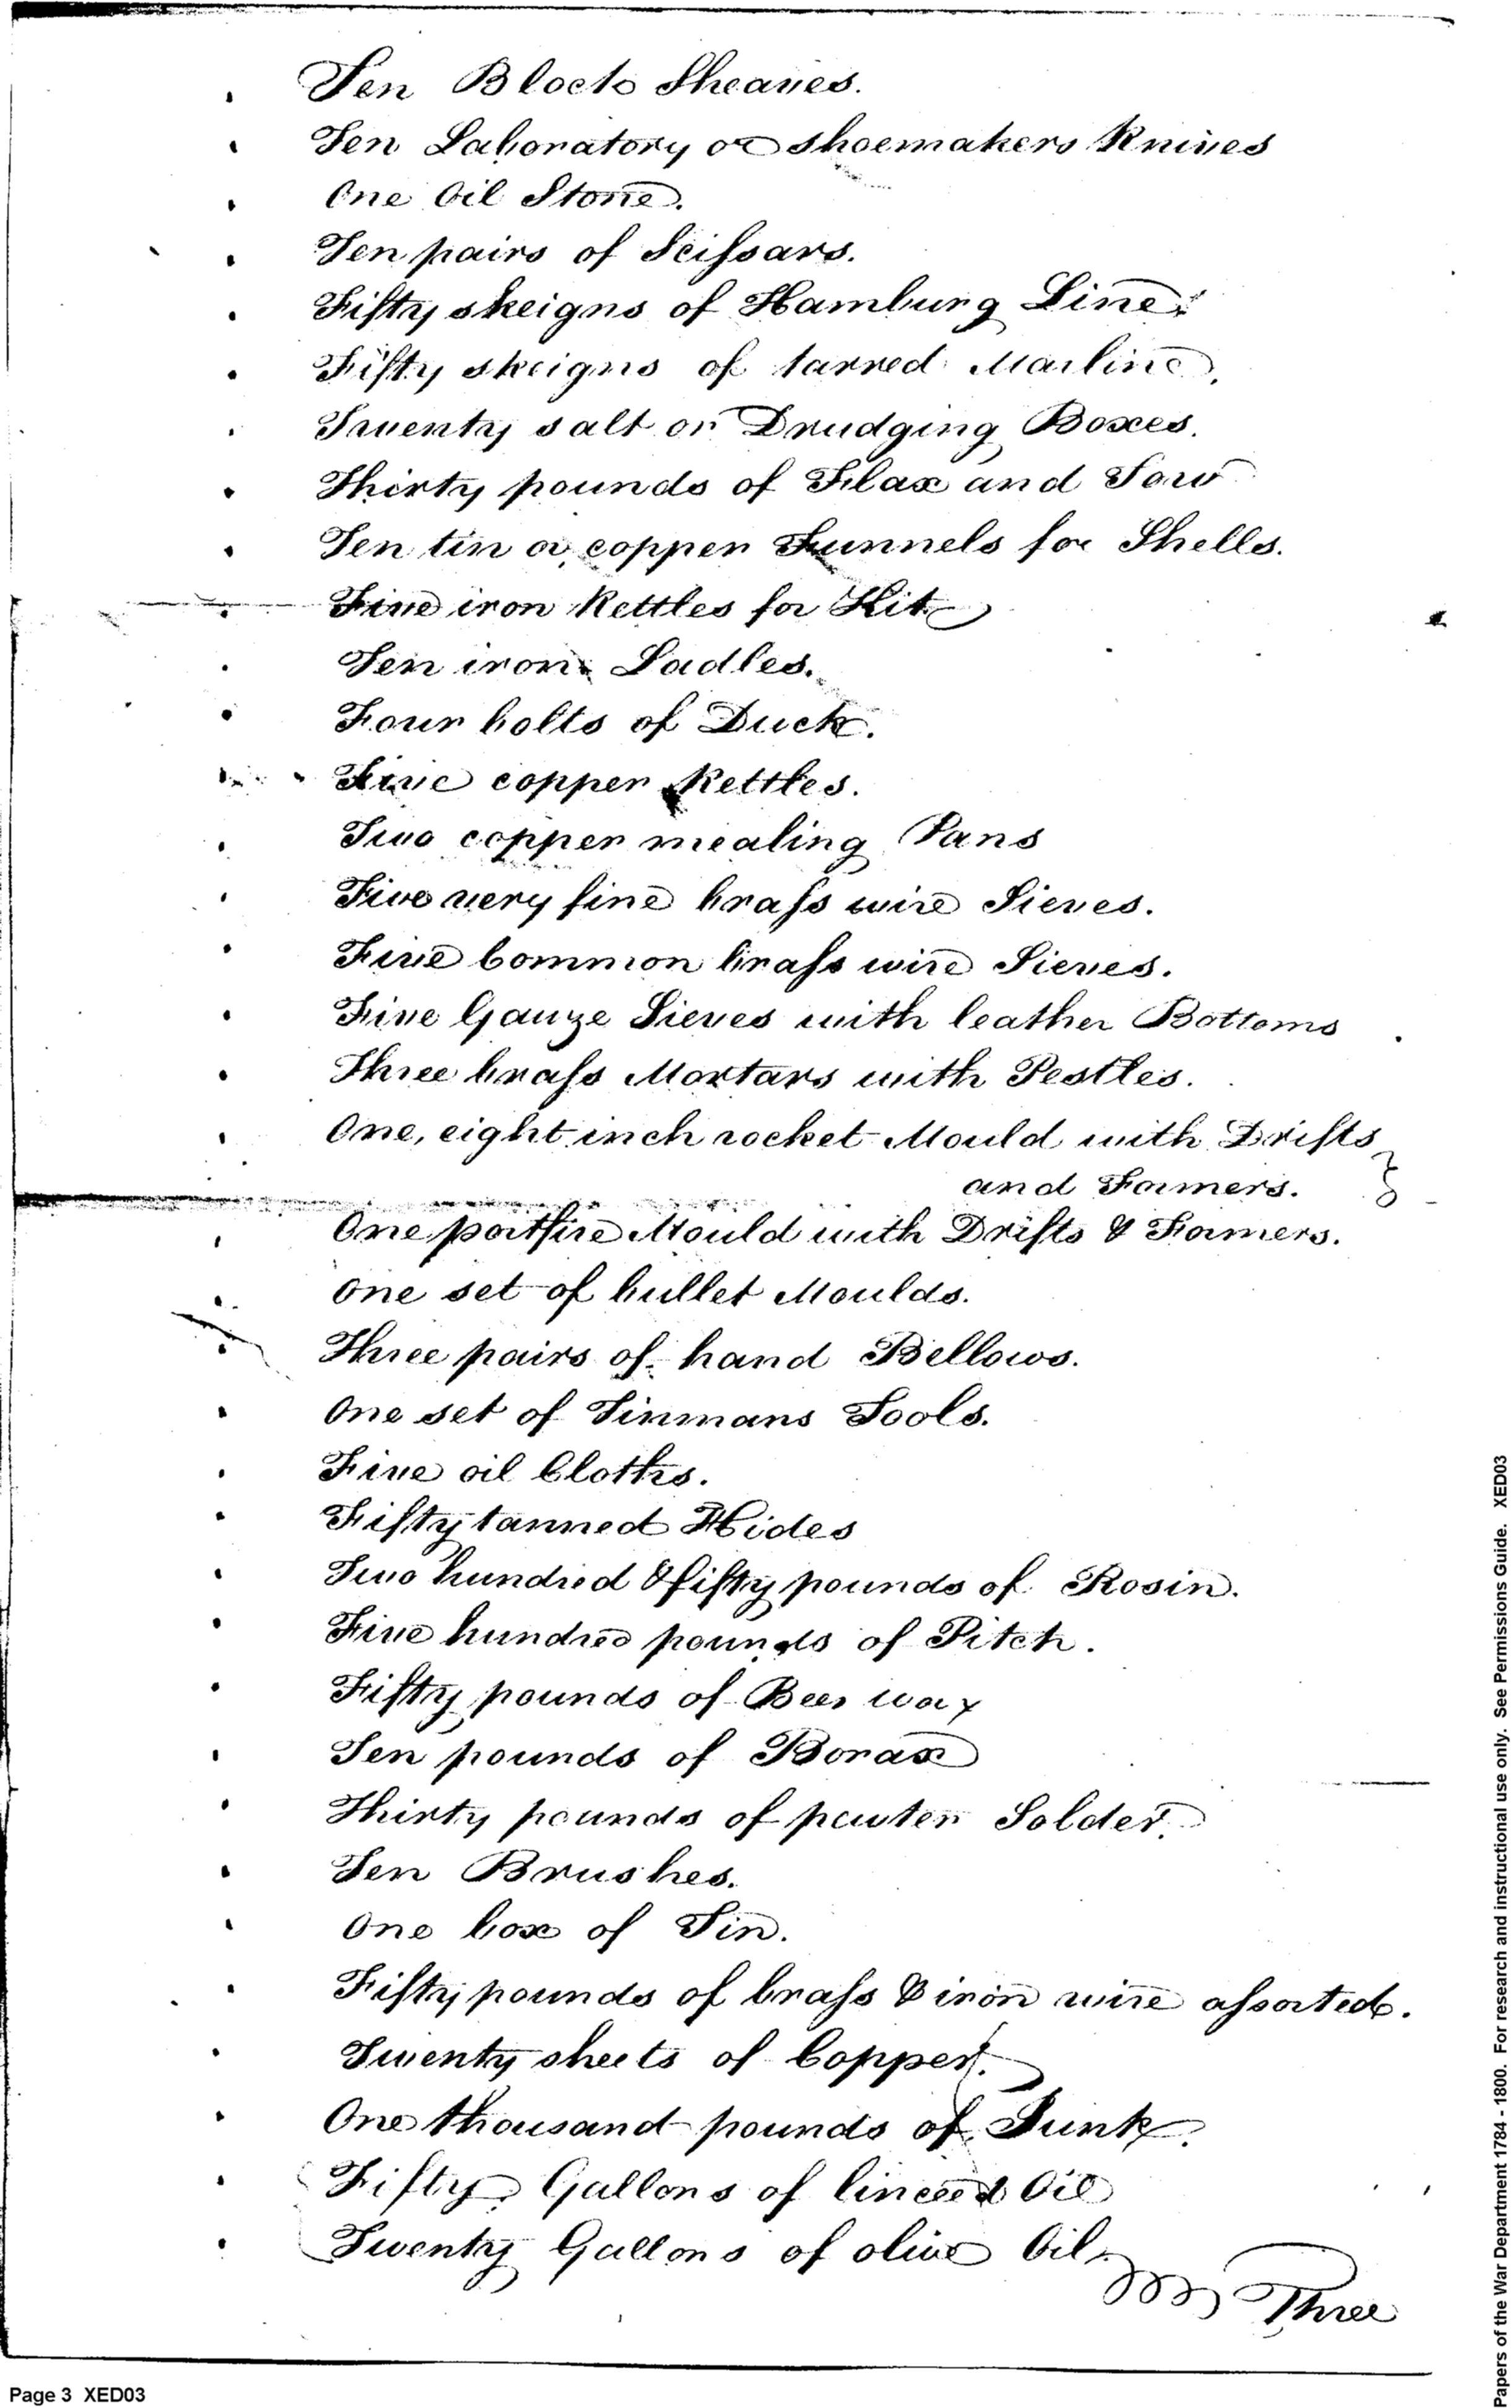 Ten Block Sheaves.
Ten Laboratory or shoemakers Knives
One Oil Stone.
Ten pairs of Scissars.
Fifty skeigns of Hamburg Line.
Fifty skeigns of tarred Marline.
Twenty salt or Drudging Boxes.
Thirty pounds of Flax and Tow
Ten tin or copper Funnels for Shells.
Five iron Kettles for Kit
Ten iron Ladles.
Four bolts of Duck.
Five copper Kettles.
Two copper mealing Pans
Five very fine brass wire Sieves.
Five Common brass wire Sieves.
Five Gauze Sieves with leather Bottoms
Three brass Mortars with Pestles.
One, eight inch rocket Mould with Drifts
and Formers.
One portfire Mould with Drifts & Formers.
One set of bullet Moulds.
Three pairs of hand Bellows.
One set of Tinmans Tools.
Five oil Cloths.
Fifty tanned Hides
Two hundred & fifty pounds of Rosin.
Five hundred pounds of Pitch.
Fifty pounds of Bees wax
Ten pounds of Borax
Thirty pounds of pewter Solder.
Ten Brushes.
One box of Tin.
Fifty pounds of brass & iron wire assorted.
Twenty sheets of Copper.
One thousand pounds of Junk.
Fifty Gallons of linceed Oil
Twenty Gallons of olive Oil
Three
Page 3 XED03
Papers of the War Department 1784 - 1800. For research and instructional use only. See Permissions Guide. XED03